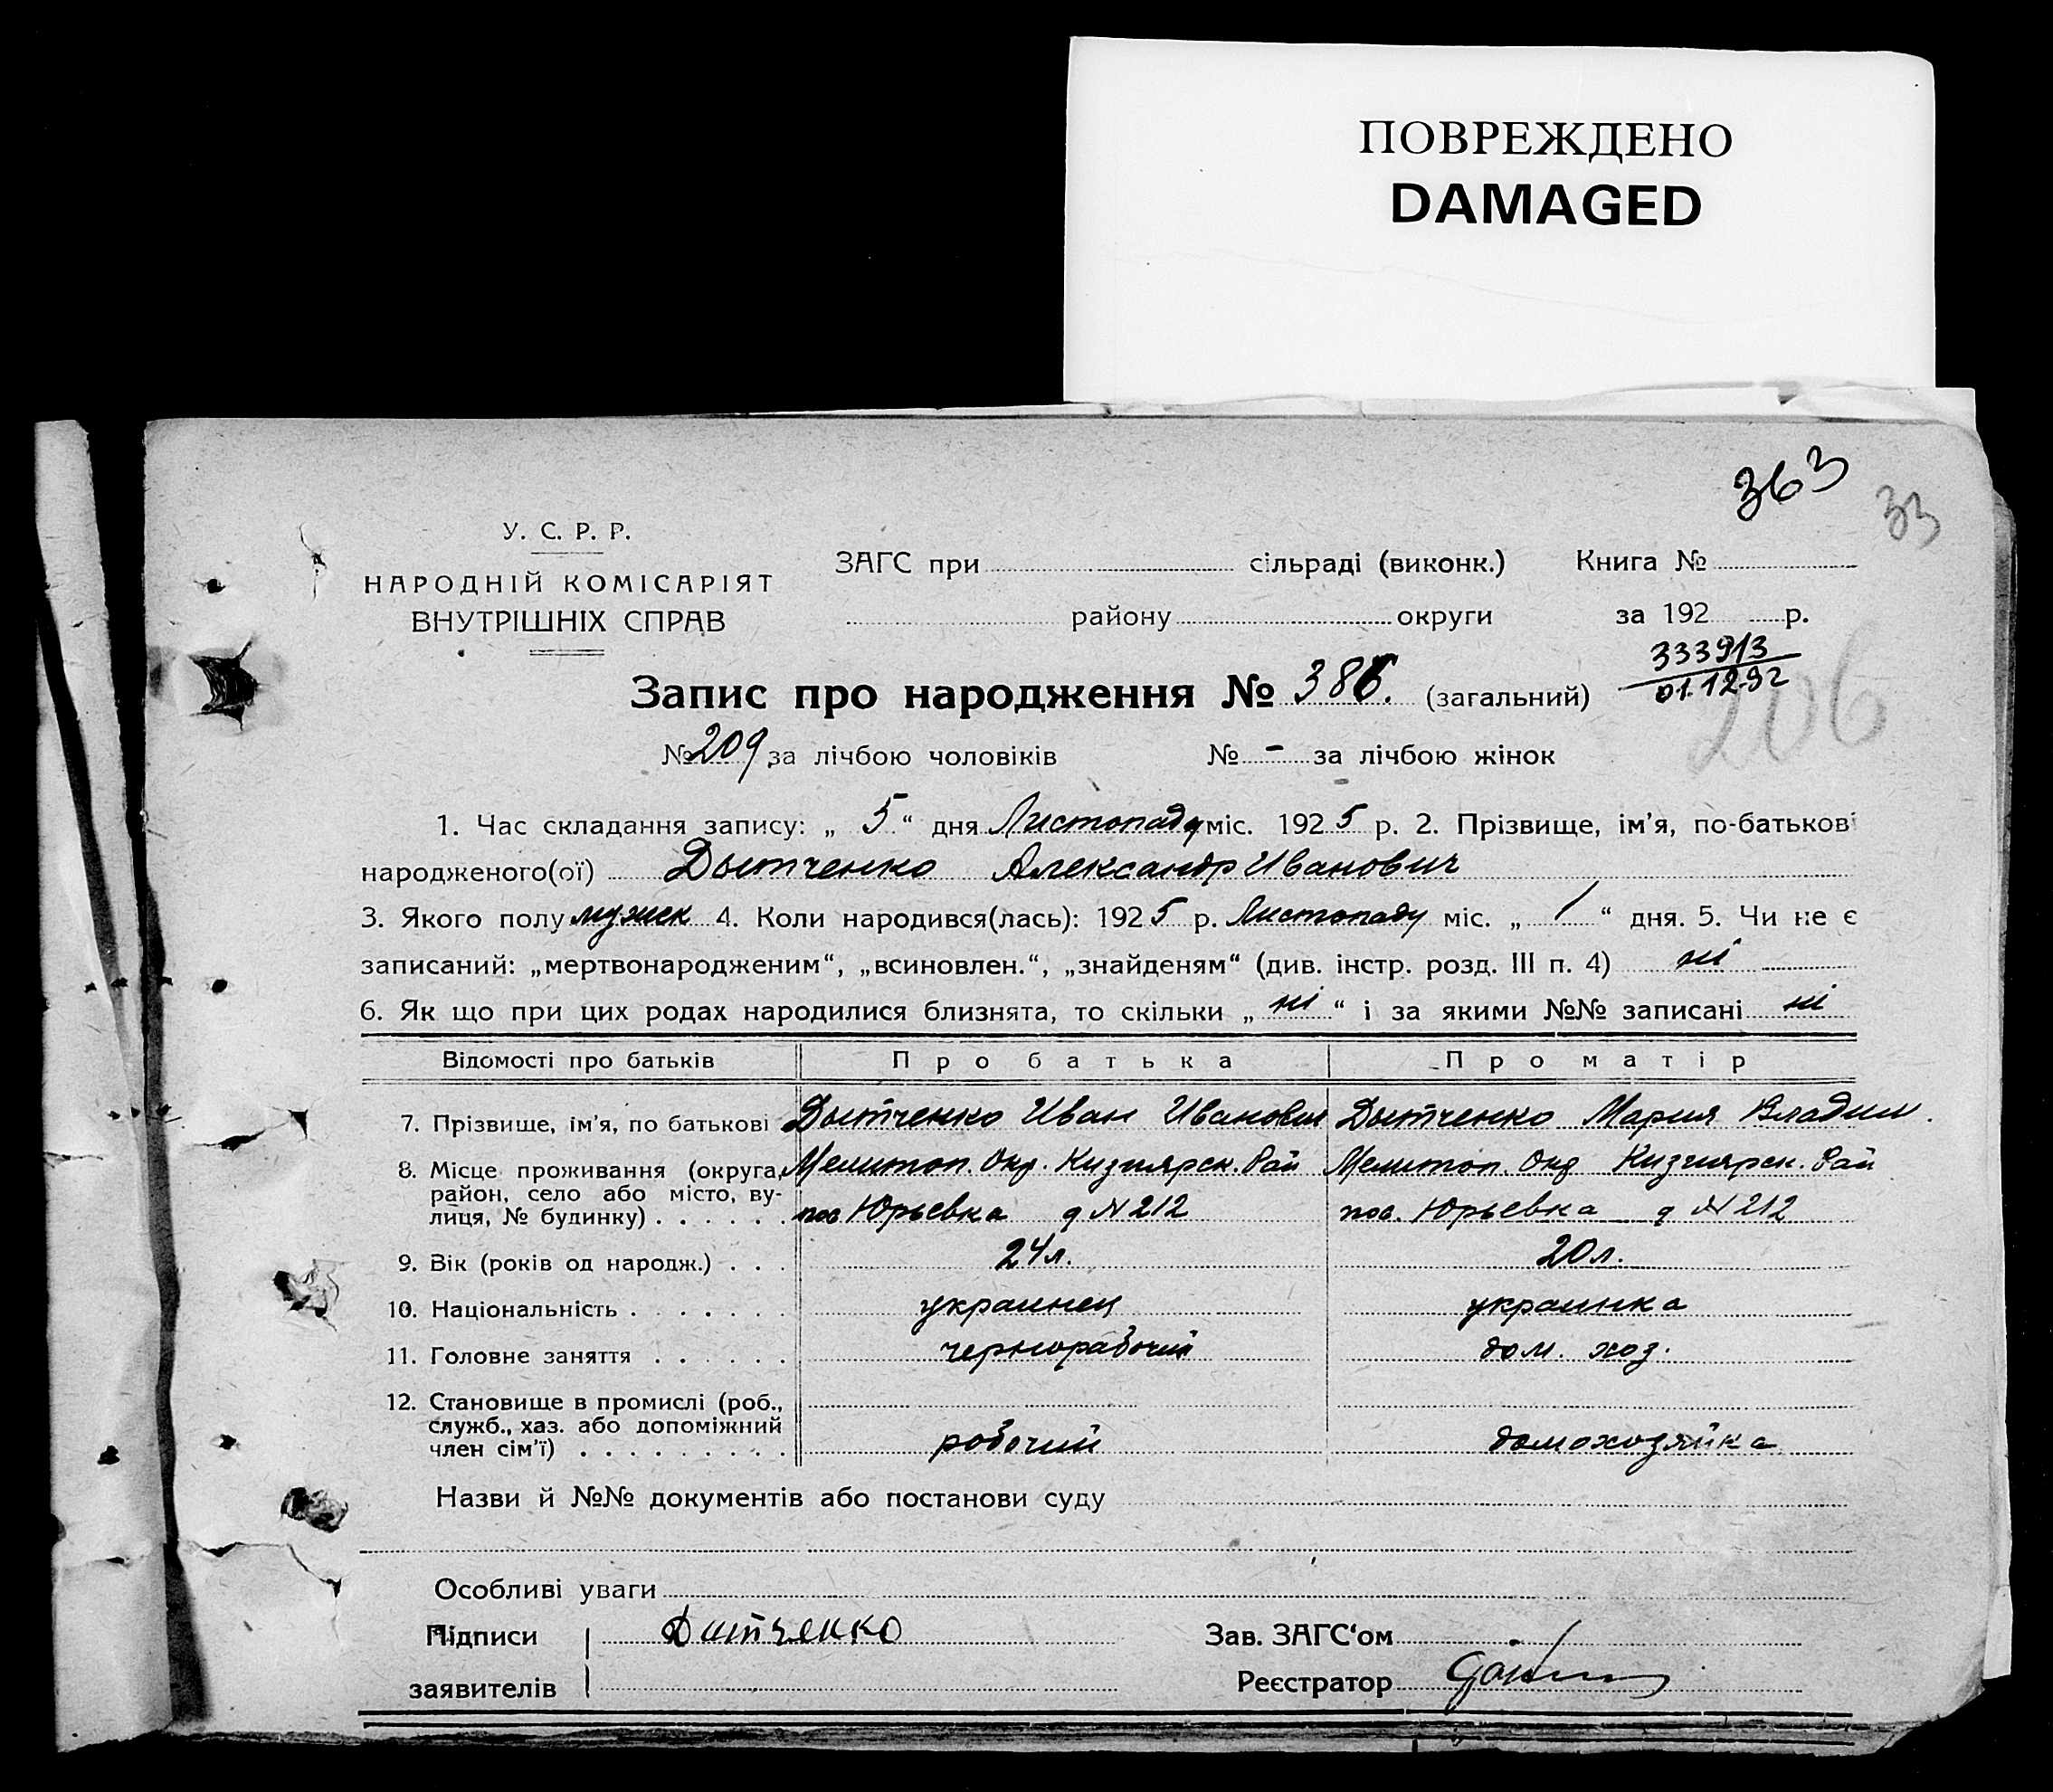 ПОВРЕЖДЕНО
DAMAGED
363
33
У. С. Р. Р.
НАРОДНІЙ КОМІСАРІЯТ
ВНУТРІШНІХ СПРАВ
ЗАГС при сільраді (виконк.) Книга №
району округи за 192 р.
333913
01.12.92
Запис про народження № 386. (загальний)
206
№ 209 за лічбою чоловіків № - за лічбою жінок
1. Час складання запису: „ 5 “ дня Листопаду міс. 1925 р. 2. Прізвище, ім’я, по-батькові
народженого(ої) Дытченко Александр Иванович
3. Якого полу мужск 4. Коли народився(лась): 1925 р. Листопаду міс. „ 1 “ дня. 5. Чи не є
записаний: „мертвонародженим“, „всиновлен.“, „знайденям“ (див. інстр. розд. III п. 4) ні
6. Як що при цих родах народилися близнята, то скільки „ ні “ і за якими №№ записані ні
Відомості про батьків Про батька Про матір
7. Прізвище, ім’я, по батькові Дытченко Иван Иванович Дытченко Мария Владим.
8. Місце проживання (округа, Мелитоп. Окр. Кизиярск. Рай Мелитоп. Окр Кизиярск. Рай
район, село або місто, ву-
лиця, № будинку) . . . . . . пос Юрьевка д N 212 пос. Юрьевка д N 212
9. Вік (років од народж.) . . . 24 л. 20 л.
10. Національність . . . . . . . украинец украинка
11. Головне заняття . . . . . . чернорабочий дом. хоз.
12. Становище в промислі (роб.,
служб., хаз. або допоміжний
член сім’ї) . . . . . . . . . робочий домохозяйка
Назви й №№ документів або постанови суду
Особливі уваги
Підписи Дитченко Зав. ЗАГС‘ом
заявителів Реєстратор